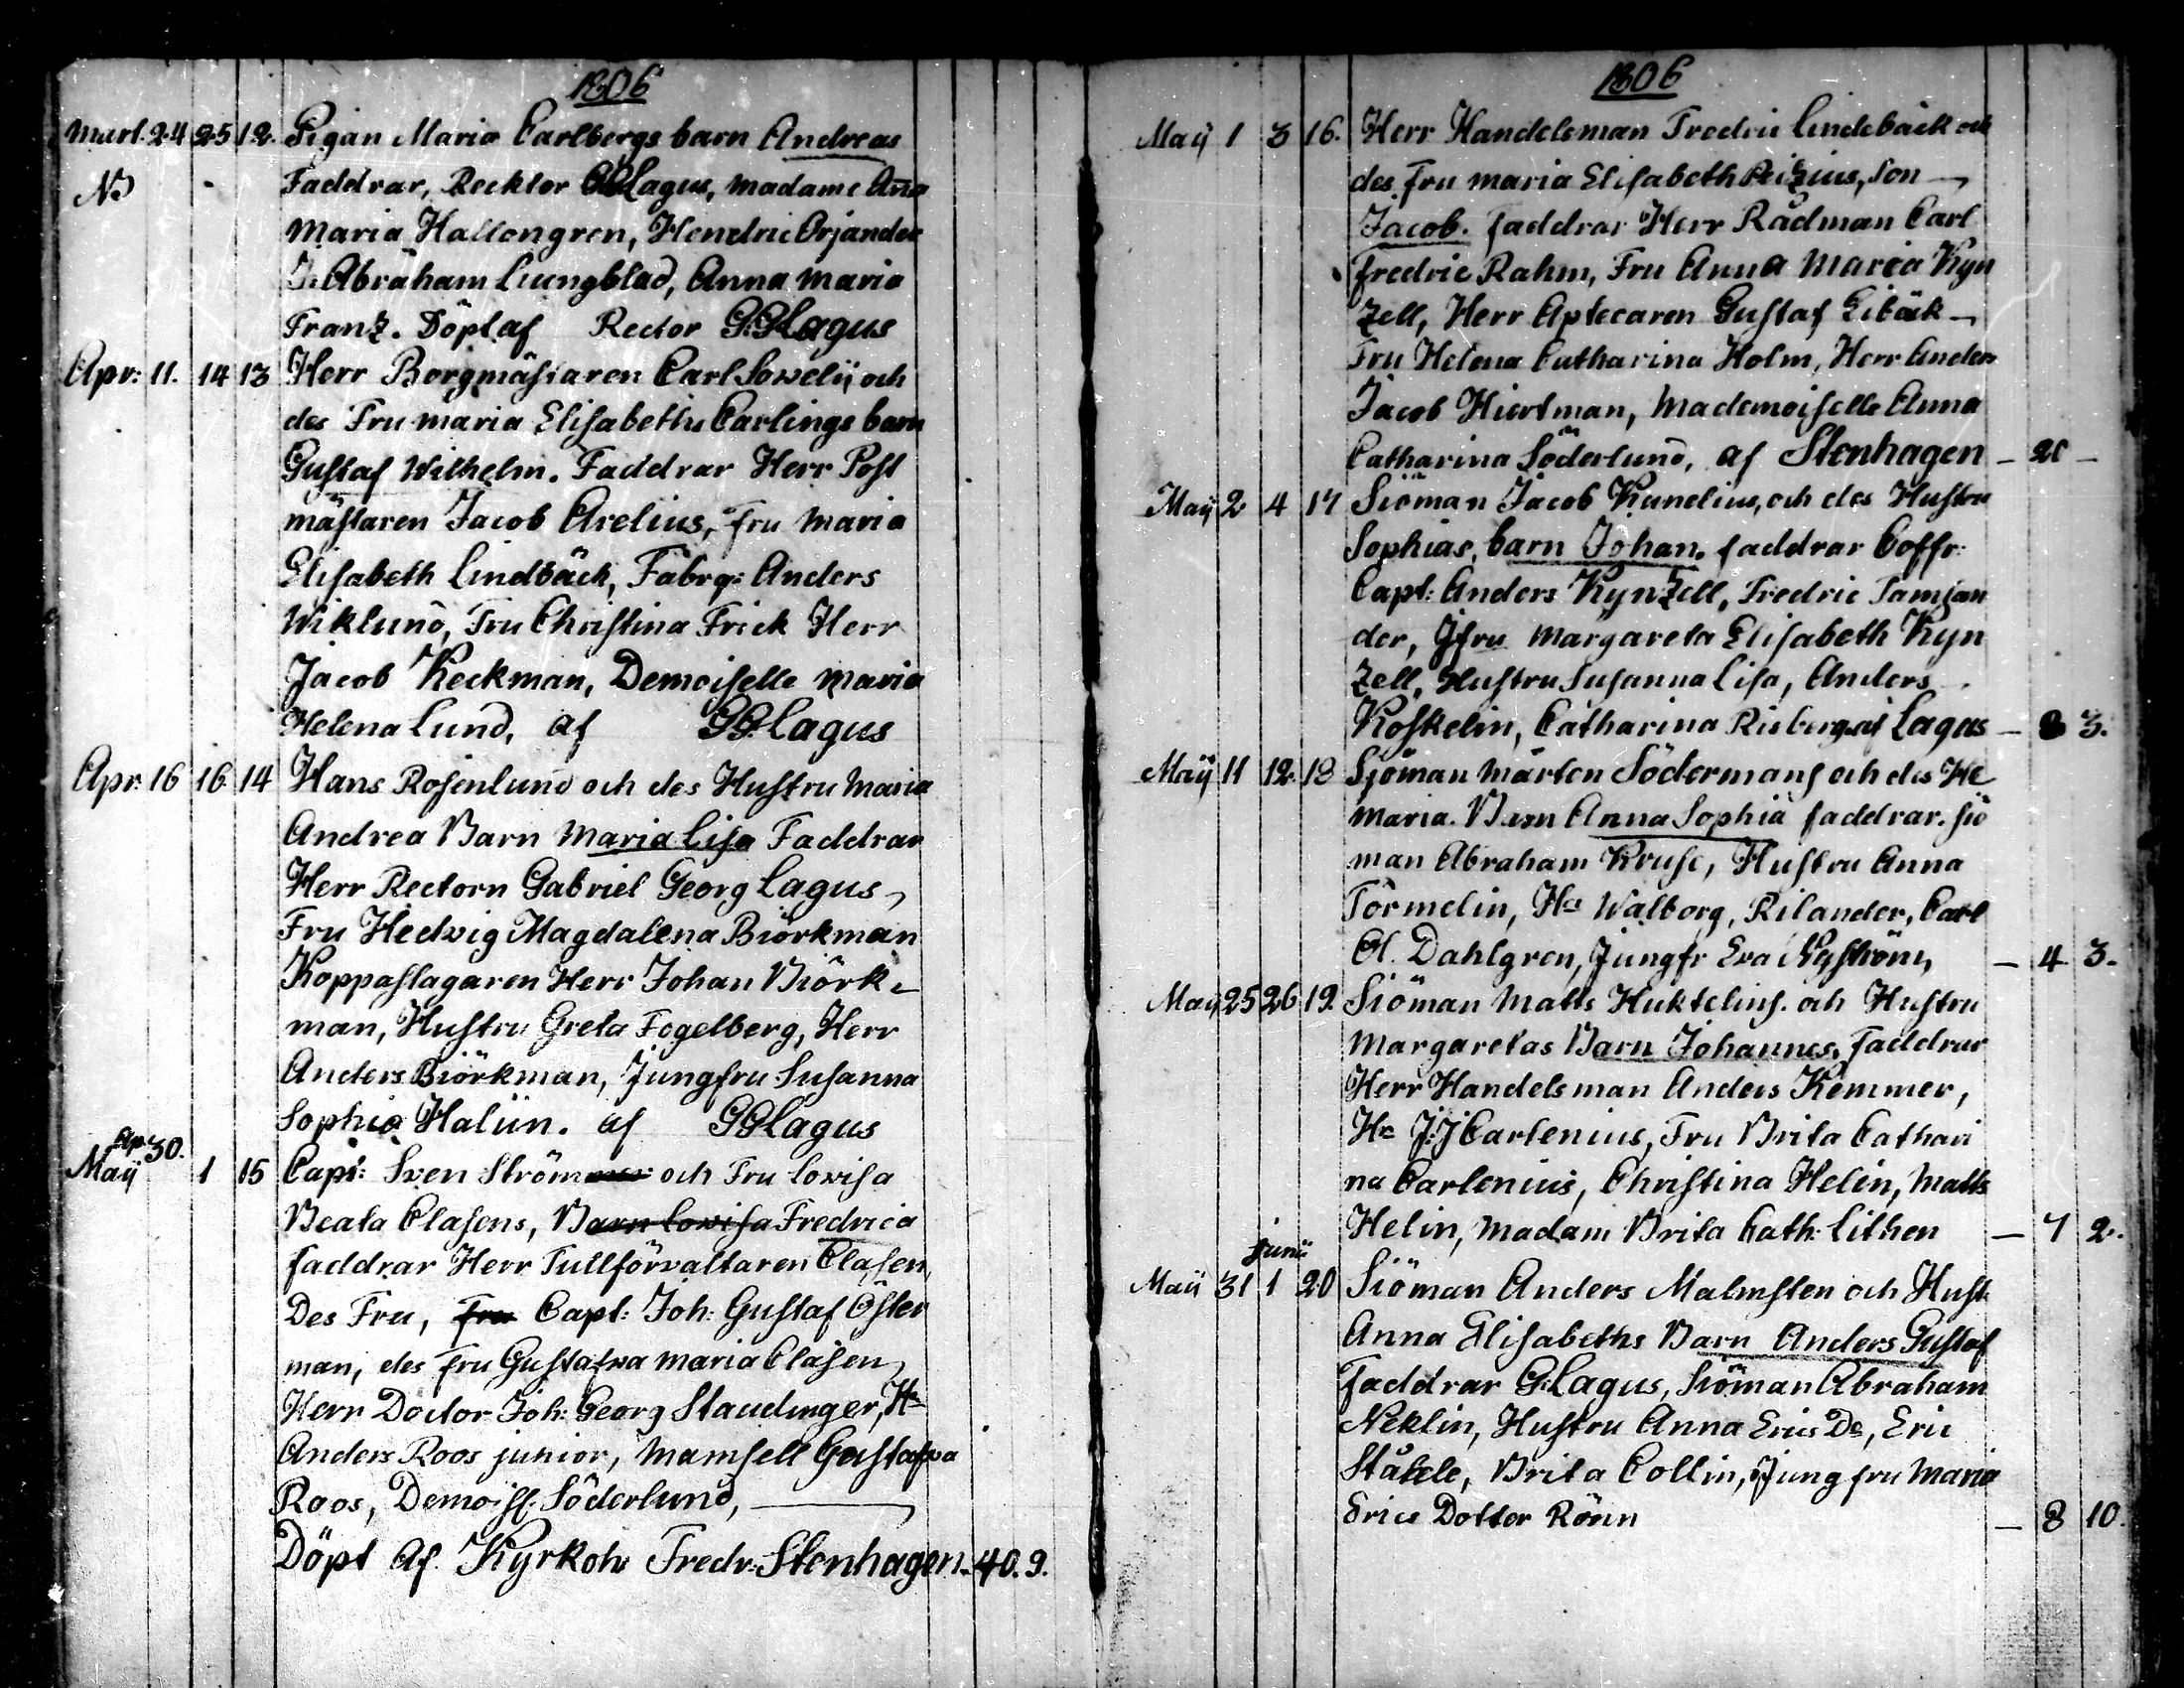 1806
Mart. 24 25 12. Pigan Maria Carlbergs barn Andreas
Nb Faddrar, Recktor GGLagus, Madame Ana
Maria Hallongren, Hendric Orjander
Abraham Liungblad, Anna Maria
Franz. Döpt af Rector G:GLagus
Apr: 11. 14 13 Herr Borgmästaren Carl Sovelij och
des Fru Maria Elisabeths Carlings barn
Gustaf Wilhelm. Faddrar Herr Post
mästaren Jacob Arelius, Fru Maria
Elisabeth Lindbäck, Fabrq: Anders
Wiklund, Fru Christina Frick Herr
Jacob Keckman, Demoiselle Maria
Helena Lund, af GGLagus
Apr: 16 16 14 Hans Rosenlund och des Hustru Maria
Andrea Barn Maria Lisa Faddrar
Herr Rectorn Gabriel Georg Lagus,
Fru Hedvig Magdalena Biörkman
Koppaslagaren Herr Johan Biörk-
man, Hustru Greta Fogelberg, Herr
Anders Biörkman, Jungfru Susanna
Sophia Haliin. af GGLagus
Ap 30.
Maij 1 15 Capt: Sven Ström och Fru Lovisa
Beata Clasens, Barn Lovisa Fredrica
faddrar Herr Tullförvaltaren Clasen,
Des Fru, Fru Capt: Joh: Gustaf Öster
man, des Fru Gustafva Maria Clasen,
Herr Doctor Joh: Georg Staudinger, Hr
Anders Roos junior, Mamsell Gustafva
Roos, Demoisl. Söderlund,
Döpt af Kyrkoh Fredr: Stenhagen. 40. 9.
1806
Maij 1 3 16. Herr Handelsman Fredric Lindebäck och
des Fru Maria Elisabeth Peitzius, Son
Jacob. faddrar Herr Rådman Carl
Fredric Rahm, Fru Anna Maria Kyn
zell, Herr Aptecaren Gustaf Eibäck
Fru Helena Catharina Holm, Herr Anders
Jacob Hiertman, Mademoiselle Anna
Catharina Söderlund, af Stenhagen
Maij 2 4 17 Siöman Jacob Kunelius, och des Hustru
Sophias, barn Johan. faddrar Coffr:
Capt: Anders Kynzell, Fredric Tamjan
der, Jfru Margareta Elisabeth Kyn
zell, Hustru Susanna Lisa, Anders
Koskelin, Catharina Risberg, af Lagus – 8 3.
Maij 11 12 18 Sjöman Mårten Södermans och des He
Maria. Barn Anna Sophia faddrar. Siö
man Abraham Kruse, Hustru Anna
Törmelin, Hu Walborg, Rilander, Carl
Ol. Dahlgren, Jungfr Eva Nyström, – 4 3.
Maij 25 26 19. Siöman Matts Huktelius. och Hustru
Margaretas Barn Johannes, faddrar
Herr Handelsman Anders Kemmer,
Hr J:J Carlenius, Fru Brita Cathari
na Carlenius, Christina Helin, Matts
Helin, Madam Brita Cath: Lithen – 7 2.
Junii
Maij 31 1 20 Siöman Anders Malmsten och Hust
Anna Elisabeths Barn Anders Gustaf
Faddrar G:Lagus, Siöman Abraham
Neklin, Hustru Anna Erics Dr, Eric
Ståhle, Brita Collin, Jungfru Maria
Erics Dotter Rönn – 8 10.